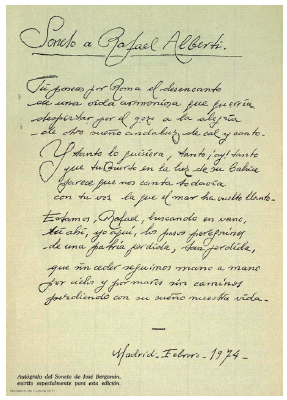 Soneto a Rafael Alberti.
Tu paseas por Roma el desencanto
de una vida armoniosa que querría
despertar por el gozo a la alegría
de otro sueño andaluz de cal y canto.
Y tanto lo quisiera, tanto, ¡ay! tanto
y que tu Puerto en la luz de su Bahía
parece que nos canta todavía
con tu voz la que el mar ha vuelto llanto.
Estamos, Rafael, buscando en vano,
tú ahí, yo aquí, los pasos peregrinos
de una patria perdida, tan perdida,
que sin ceder seguimos mano a mano
por cielos y por mares sin caminos
perdiendo con su sueño nuestra vida.
Madrid - Febrero - 1974 -
Autógrafo del Soneto de José Bergamín,
escrito especialmente para esta edición.